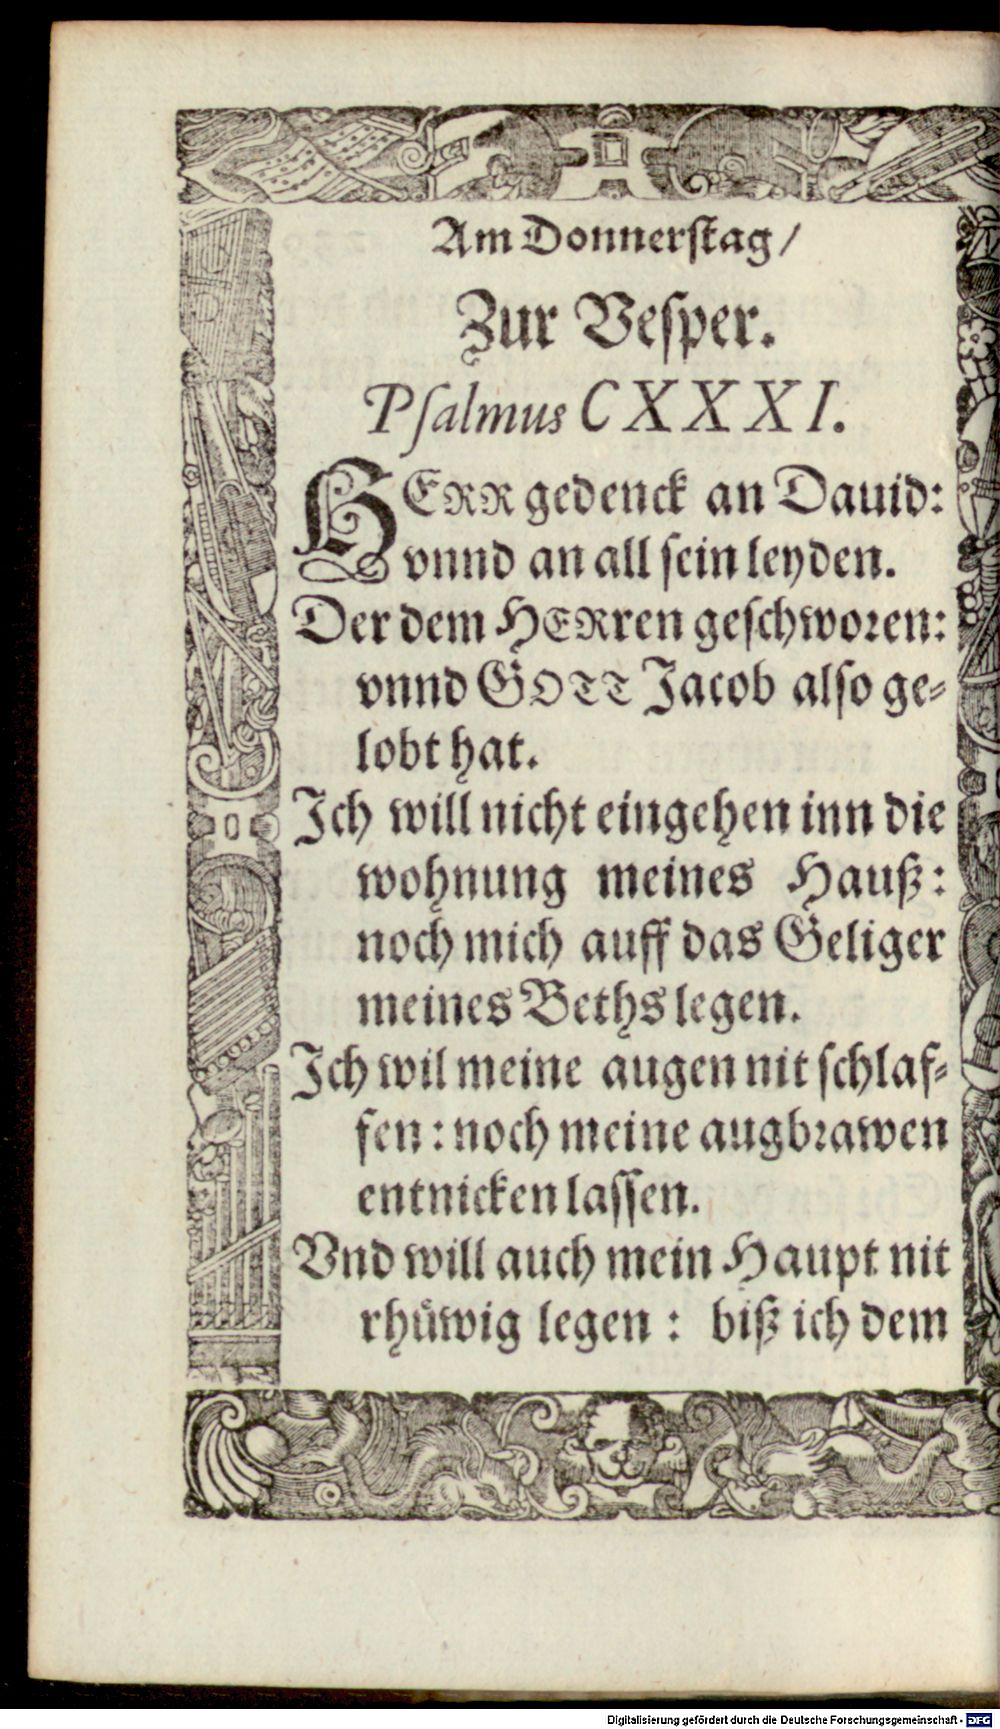 Am Donnerstag/
Zur Vesper.
Psalmus CXXXI.
HERR gedenck an Dauid:
vnnd an all sein leyden.
Der dem HERRen geschworen:
vnnd GOTT Jacob also ge-
lobt hat.
Ich will nicht eingehen inn die
wohnung meines Hauß:
noch mich auff das Geliger
meines Beths legen.
Ich wil meine augen nit schlaf-
fen: noch meine augbrawen
entnicken lassen.
Vnd will auch mein Haupt nit
rhüwig legen: biß ich dem
Digitalisierung gefördert durch die Deutsche Forschungsgemeinschaft - DFG